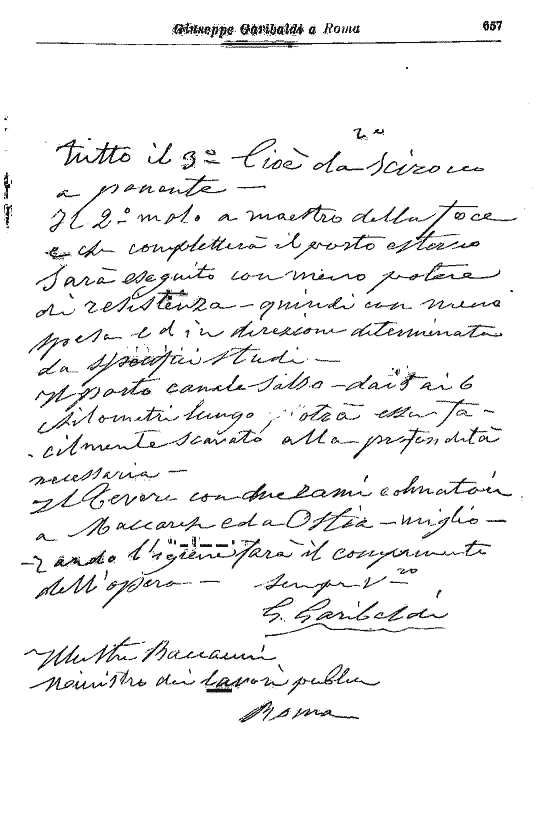 Giuseppe Garibaldi a Roma 657
2º
Tutto il 3º Cioè da Scirocco
a ponente —
Il 2º molo a maestro della foce
e che completterà il porto esterno
Sarà eseguito con meno potere
di resistenza — quindi con meno
spesa ed in direzione determinata
da specifici studi —
Il porto canale Salso — dai 5 ai 6
chilometri lungo potrà esser fa-
cilmente scavato alla profondità
necessaria —
Il Tevere con due rami colmatori
a Maccarese ed a Ostia — miglio-
rando l'igiene farà il complemento
dell'opera — Sempre Vro
G. Garibaldi
Illustre Baccarini
Ministro dei lavori pubblici
Roma